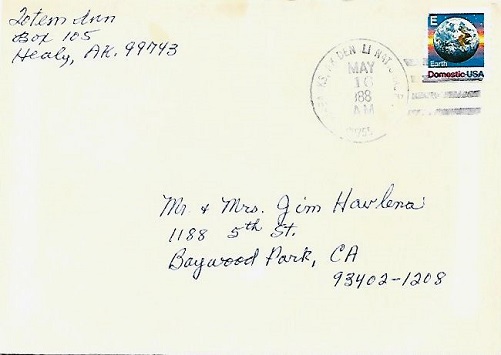 Totem Inn
Box 105
Healy, AK. 99743
E
Earth
Domestic USA
MAY
10
1988
AM
Mr & Mrs. Jim Havlena
1188 5th St.
Baywood Park, CA
93402-1208